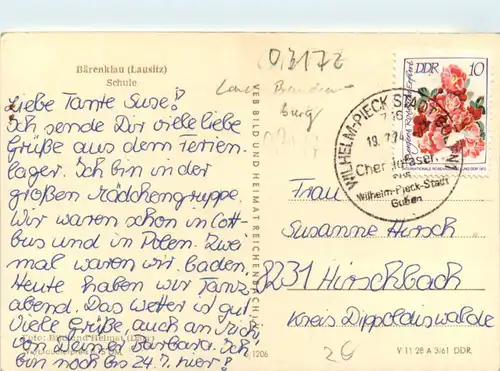 Bärenklau (Lausitz)
Schule
Liebe Tante Suse!
Ich sende Dir viele liebe
Grüße aus dem Ferien-
lager. Ich bin in der
großen Mädchengruppe.
Wir waren schon in Cott-
bus und in Polen. Zwei
mal waren wir baden.
Heute haben wir Tanz-
abend. Das Wetter ist gut.
Viele Grüße, auch an Erich,
von Deiner Barbara. Ich
bin noch bis 24.7. hier!
Foto: Bild und Heimat
VEB BILD UND HEIMAT REICHENBACH
1206
03172
Branden-
burg
DDR 10
WILHELM-PIECK-STADT GUBEN
Chemiefaser
aus
Wilhelm-Pieck-Stadt
Guben
Frau
Susanne Hirsch
8231 Hirschbach
Kreis Dippoldiswalde
V 11 28 A 3/61 DDR